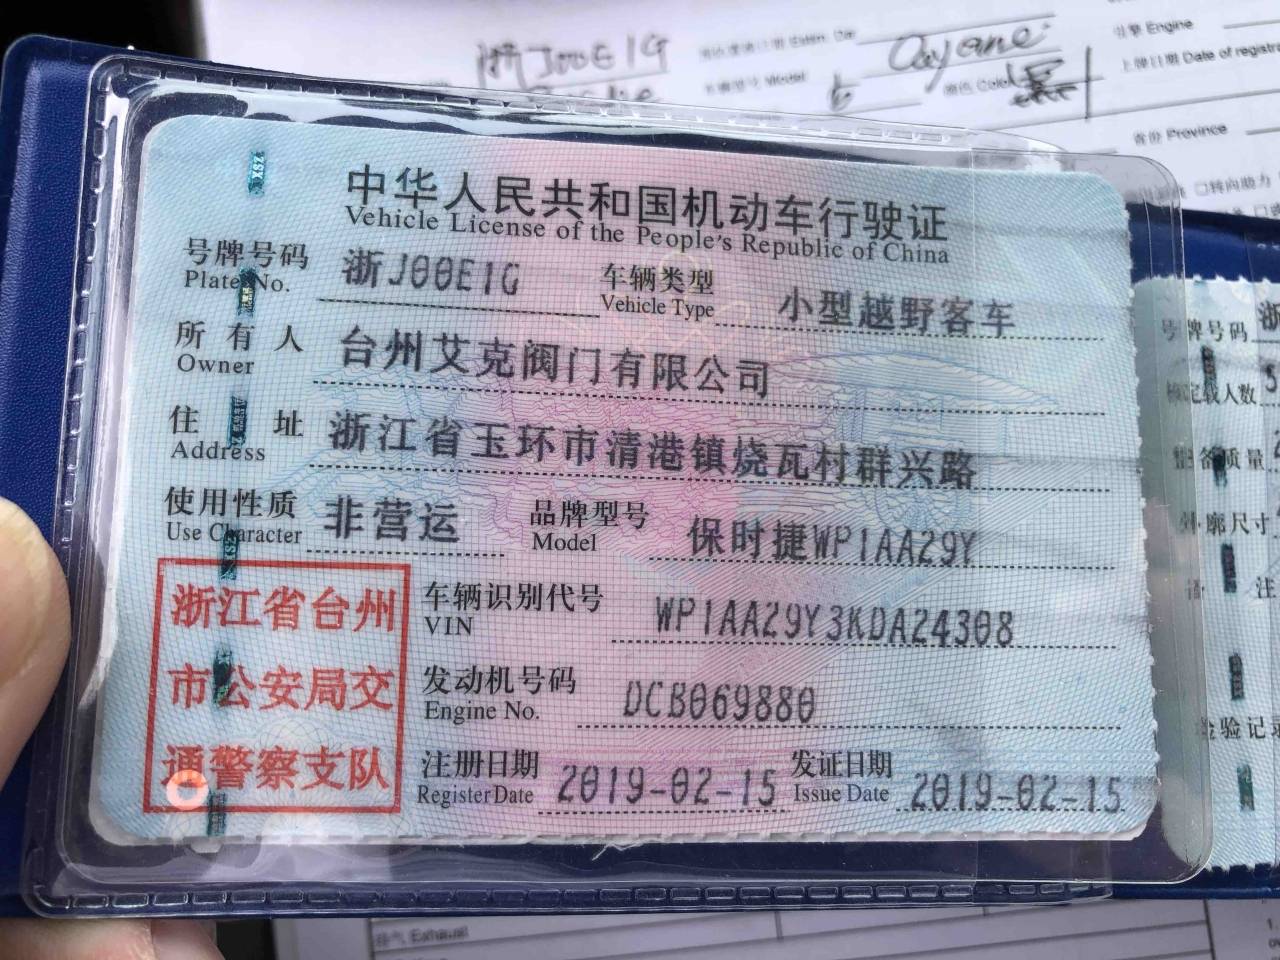 浙J00E1G
Cayane
黑
引擎 Engine
上牌日期 Date of registra
Model
颜色 Color
省份 Province
转向助力
XSZ
中华人民共和国机动车行驶证
Vehicle License of the People's Republic of China
号牌号码 浙J00E1G 车辆类型 小型越野客车
Plate No. Vehicle Type
所有人 台州艾克阀门有限公司
Owner
住址 浙江省玉环市清港镇烧瓦村群兴路
Address
使用性质 非营运 品牌型号 保时捷WP1AA29Y
Use Character Model
浙江省台州
市公安局交
通警察支队
车辆识别代号 WP1AA29Y3KDA24308
VIN
发动机号码 DCB069880
Engine No.
注册日期 2019-02-15 发证日期 2019-02-15
Register Date Issue Date
号牌号码 浙
核定载人数 5
整备质量
外廓尺寸
注
检验记录
排气 Exhaust